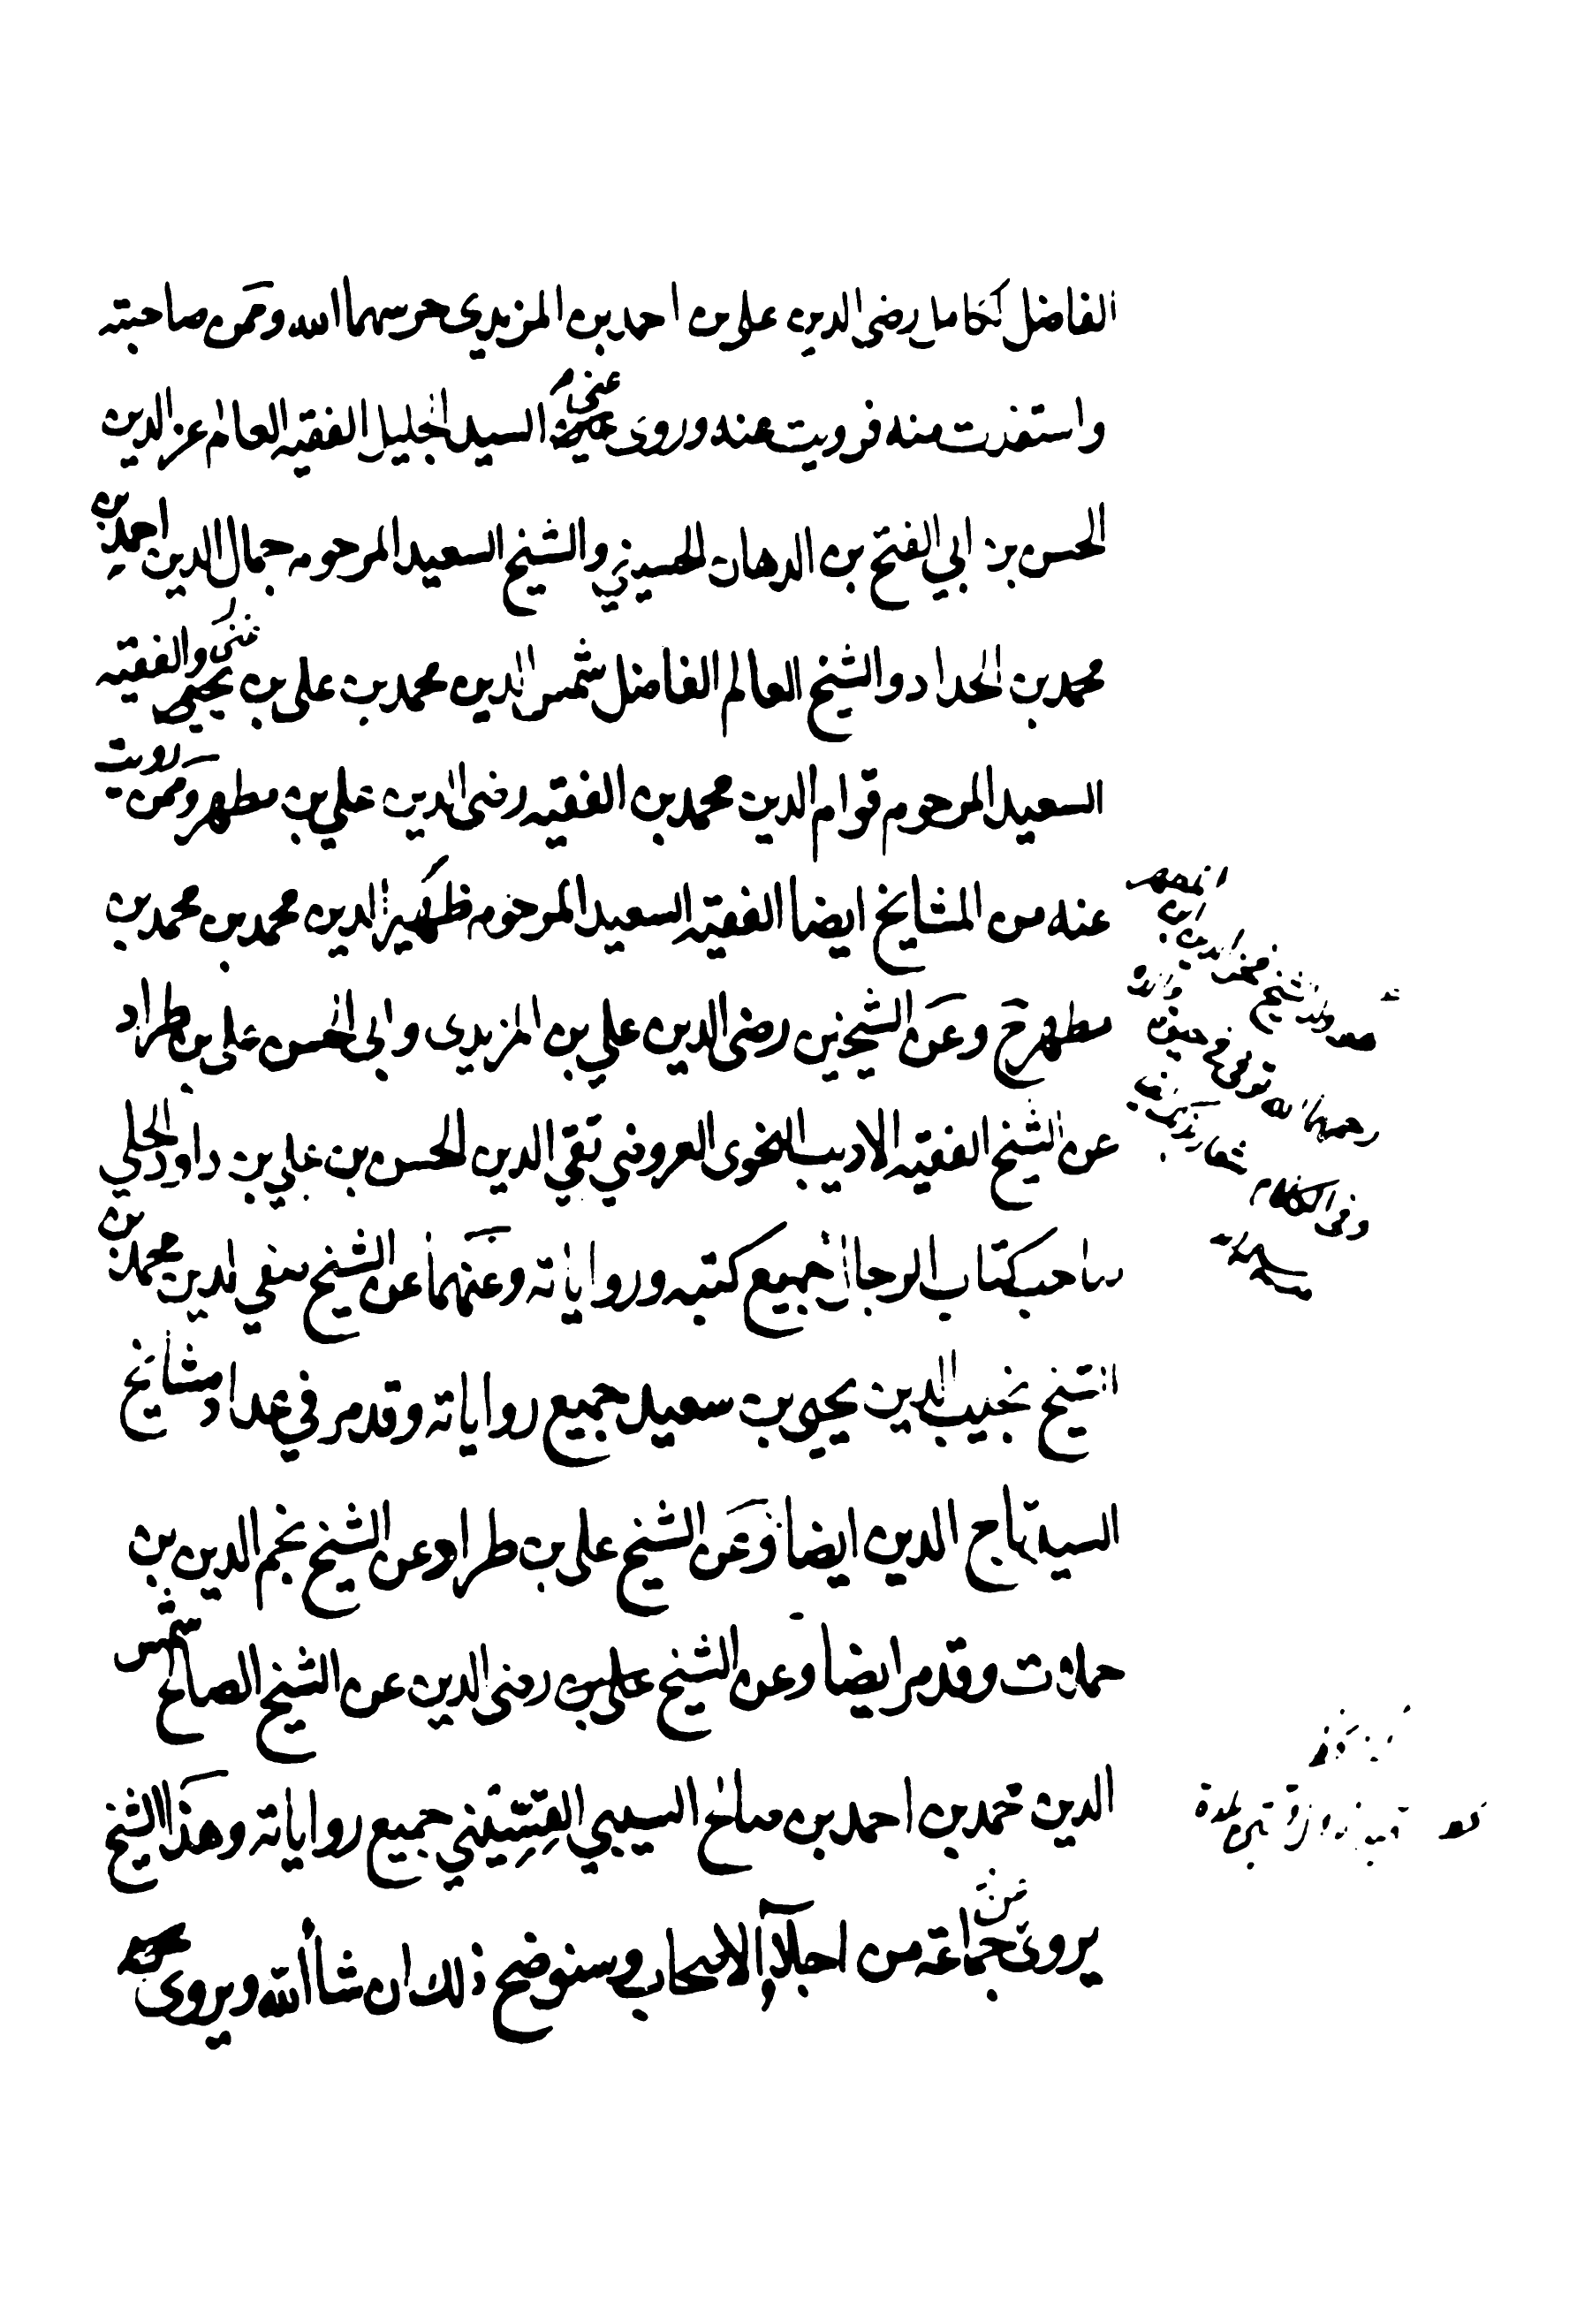 الفاضل الكامل رضي الدين علي بن احمد بن المزيدي حرسهما الله وممن صاحبته
واستفدت منه فرويت عنه وروى عني السيد الجليل الفقيه العالم عز الدين
الحسن بن ابي الفتح بن الدهان الحسيني والشيخ السعيد المرحوم جمال الدين احمد بن
محمد بن الحداد والشيخ العالم الفاضل شمس الدين محمد بن علي بن غني والفقيه
السعيد المرحوم قوام الدين محمد بن الفقيه رضي الدين علي بن مطهر وممن رويت
عنه من المشايخ ايضا الفقيه السعيد المرحوم ظهير الدين محمد بن محمد بن
مطهر ح وعن الشيخين رضي الدين علي بن المزيدي وابي الحسن علي بن طراد
عن الشيخ الفقيه الاديب النحوي العروضي تقي الدين الحسن بن علي بن داود الحلي
صاحب كتاب الرجال جميع كتبه ورواياته وعنهما عن الشيخ صفي الدين محمد بن
الشيخ نجيب الدين يحيى بن سعيد جميع رواياته وقد مر في عداد مشايخ
السيد تاج الدين ايضا وعن الشيخ علي بن طراد عن الشيخ نجم الدين بن
حملات وقد مر ايضا وعن الشيخ علي بن رضي الدين عن الشيخ الصالح شمس
الدين محمد بن احمد بن صالح السيبي القسيني جميع رواياته وهذا الشيخ
يروي عن جماعة من اجلاء الاصحاب وسنوضح ذلك ان شا الله ويروي عنه
الشيخ فخر الدين
رحمهما الله
وفي الكلام